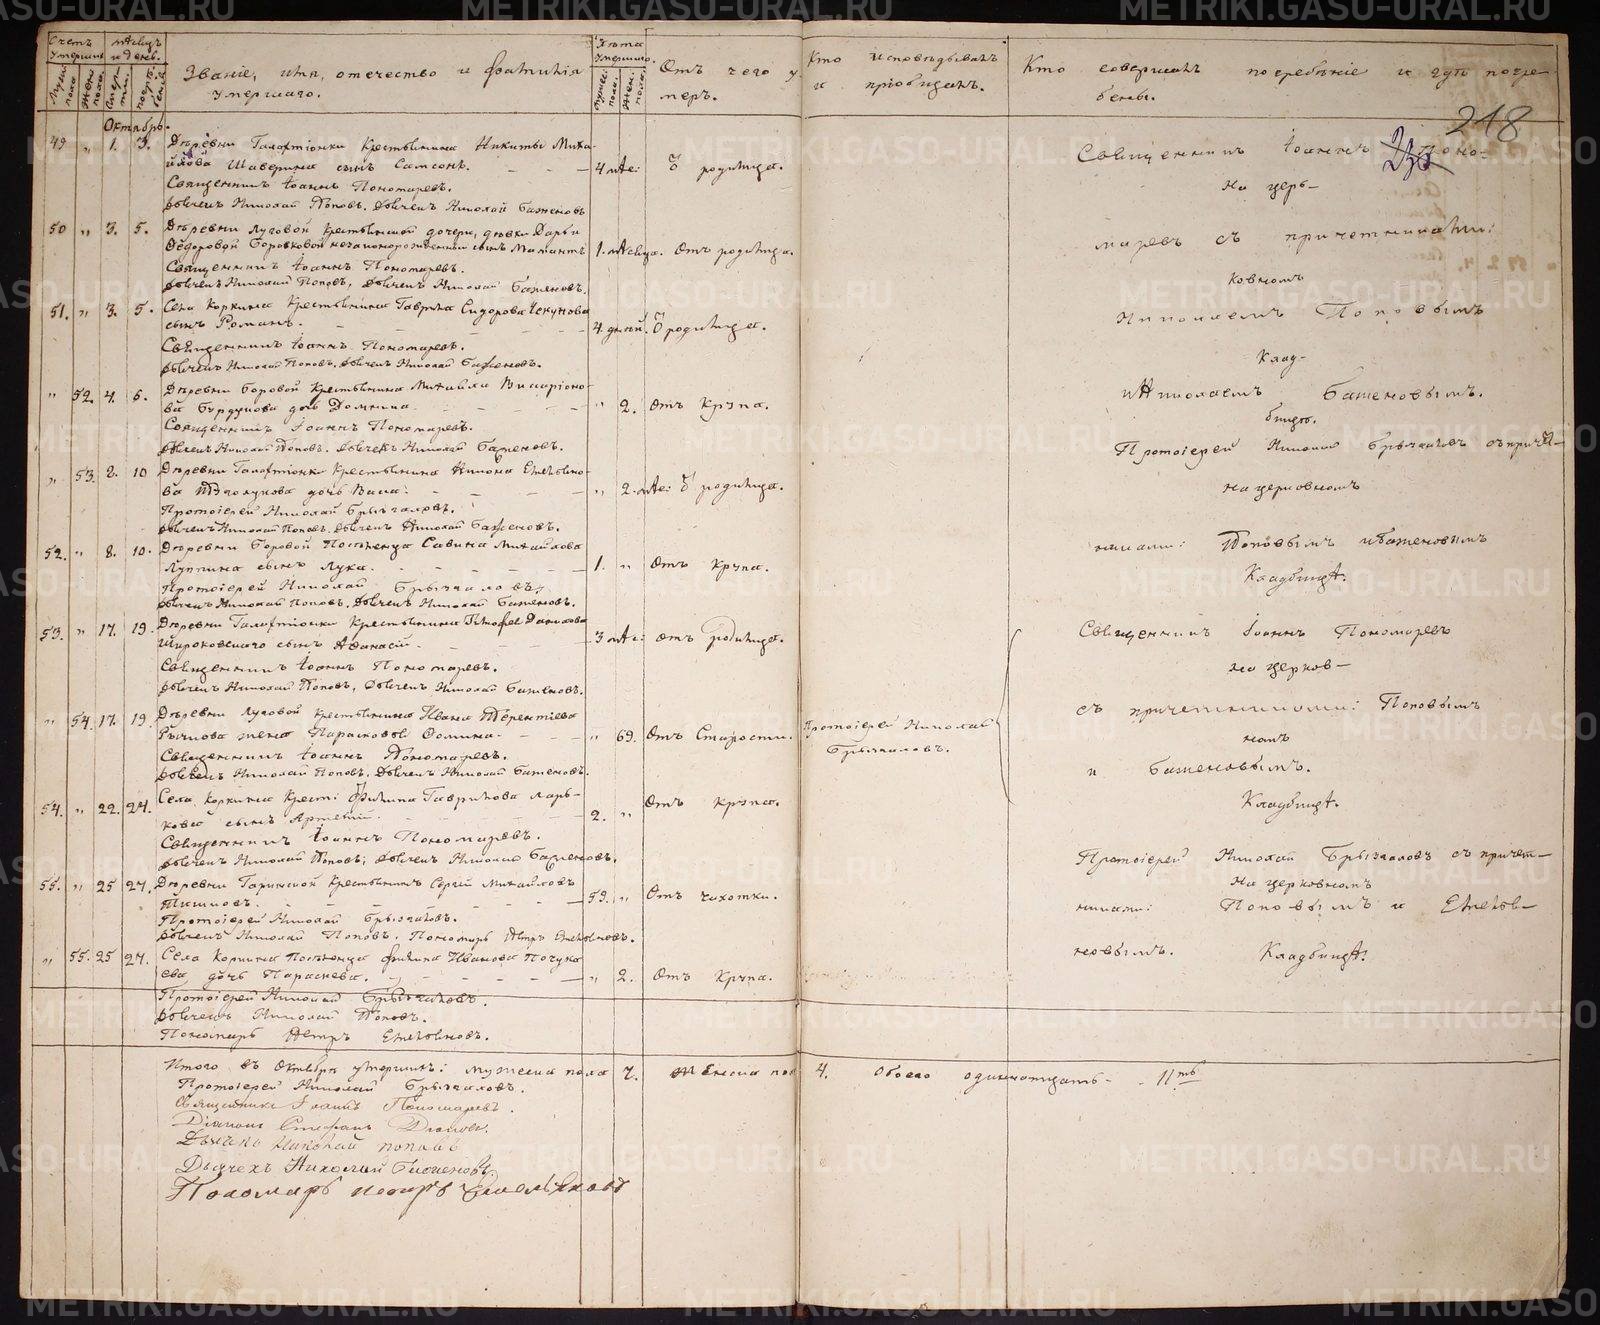 Счетъ умершихъ
Мужеска пола
Женска пола
Мѣсяцъ и день.
Смерти.
погребенія.
Званіе, имя, отечество и фамилія
умершаго.
Лѣта умершаго.
Мужес. пола.
Жен. пола.
Отъ чего у-
меръ.
Кто исповѣдывалъ
и пріобщалъ.
Кто совершалъ погребеніе и гдѣ погре-
бены.
218
Октябрь.
49 " 1. 3. Деревни Галактіонки Крестьянина Никиты Миха-
йлова Шаверина сынъ Самсонъ. 4 мѣс: Ѿ родимца.
Священникъ Іоаннъ Пономаревъ.
Дьячекъ Николай Поповъ. Дьячекъ Николай Баженовъ
50 " 3. 5. Деревни Луговой крестьянской дочери, дѣвки Дарьи
Ѳедоровой Боровковой незаконорожденный сынъ Мамантъ 1. мѣсяца. Отъ родимца.
Священникъ Іоаннъ Пономаревъ.
Дьячекъ Николай Поповъ, Дьячекъ Николай Баженовъ.
51. " 3. 5. Села Коркина Крестьянина Гаврила Сидорова Чекунова
сынъ Романъ. 4 дней. Ѿ родимца.
Священникъ Іоаннъ Пономаревъ.
Дьячекъ Николай Поповъ. Дьячекъ Николай Баженовъ.
" 52. 4. 6. Деревни Боровой Крестьянина Михаила Висаріоно-
ва Бурдукова дочь Домнина. " 2. Отъ Крупа.
Священникъ Іоаннъ Пономаревъ.
Дьячекъ Николай Поповъ. Дьячекъ Николай Баженовъ.
" 53. 8. 10 Деревни Галактіонки Крестьянина
ва дочь " 2. мѣс: Ѿ родимца.
Протоіерей Николай Брызгаловъ.
Дьячекъ Николай Поповъ. Дьячекъ Николай Баженовъ.
52. " 8. 10. Деревни Боровой Поселенца Савина Михайлова
сынъ Лука. 1. " Отъ Крупа.
Протоіерей Николай Брызгаловъ,
Дьячекъ Николай Поповъ. Дьячекъ Николай Баженовъ.
53. " 17. 19. Деревни Галактіонки Крестьянина Данилова
Широковскаго сынъ Аѳанасій. 3 мѣс: отъ родимца.
Священникъ Іоаннъ Пономаревъ.
Дьячекъ Николай Поповъ, Дьячекъ Николай Баженовъ.
" 54. 17. 19. Деревни Луговой крестьянина Ивана Терентіева
Рычкова жена Парасковья Ѳомина. " 69. Отъ Старости. Протоіерей Николай
Брызгаловъ.
Священникъ Іоаннъ Пономаревъ.
Дьячекъ Николай Поповъ, Дьячекъ Николай Баженовъ.
54. " 22. 24. Села Коркина Крест: Филипа Гаврилова Марь-
кова сынъ Артемій. 2. " Отъ Крупа.
Священникъ Іоаннъ Пономаревъ.
Дьячекъ Николай Поповъ; Дьячекъ Николай Баженовъ.
55. " 25 27. Деревни Крестьянинъ Сергій Михайловъ
59. " Отъ чахотки.
Протоіерей Николай Брызгаловъ.
Дьячекъ Николай Поповъ. Пономарь Петръ
" 55. 25 27. Села Коркина Поселенца Филипа Иванова
ева дочь Параскева. " 2. Отъ Крупа.
Протоіерей Николай Брызгаловъ.
Дьячекъ Николай Поповъ.
Пономарь Петръ
Священникъ Іоаннъ Поно-
На церь-
маревъ съ причетниками:
ковномъ
Николаемъ Поповымъ
Клад-
и Николаемъ Баженовымъ.
бищѣ.
Протоіерей Николай Брызгаловъ съ причет-
на церковномъ
никами: Поповымъ и Баженовымъ
Кладбищѣ.
Священникъ Іоаннъ Пономаревъ
на церков-
съ причетниками: Поповымъ
номъ
и Баженовымъ.
Кладбищѣ.
Протоіерей Николай Брызгаловъ съ причет-
На церковномъ
никами: Поповымъ и
новымъ. Кладбищѣ.
Итого въ Октябрѣ умершихъ: мужеска пола 7. женска пол 4. Обоего одинадцать. 11ть
Протоіерей Николай Брызгаловъ.
Священникъ Іоаннъ Пономаревъ.
Діаконъ Стефанъ
Дьячекъ Николай Поповъ
Дьячекъ Николай Баженовъ.
Пономарь Петръ
METRIKI.GASO-URAL.RU